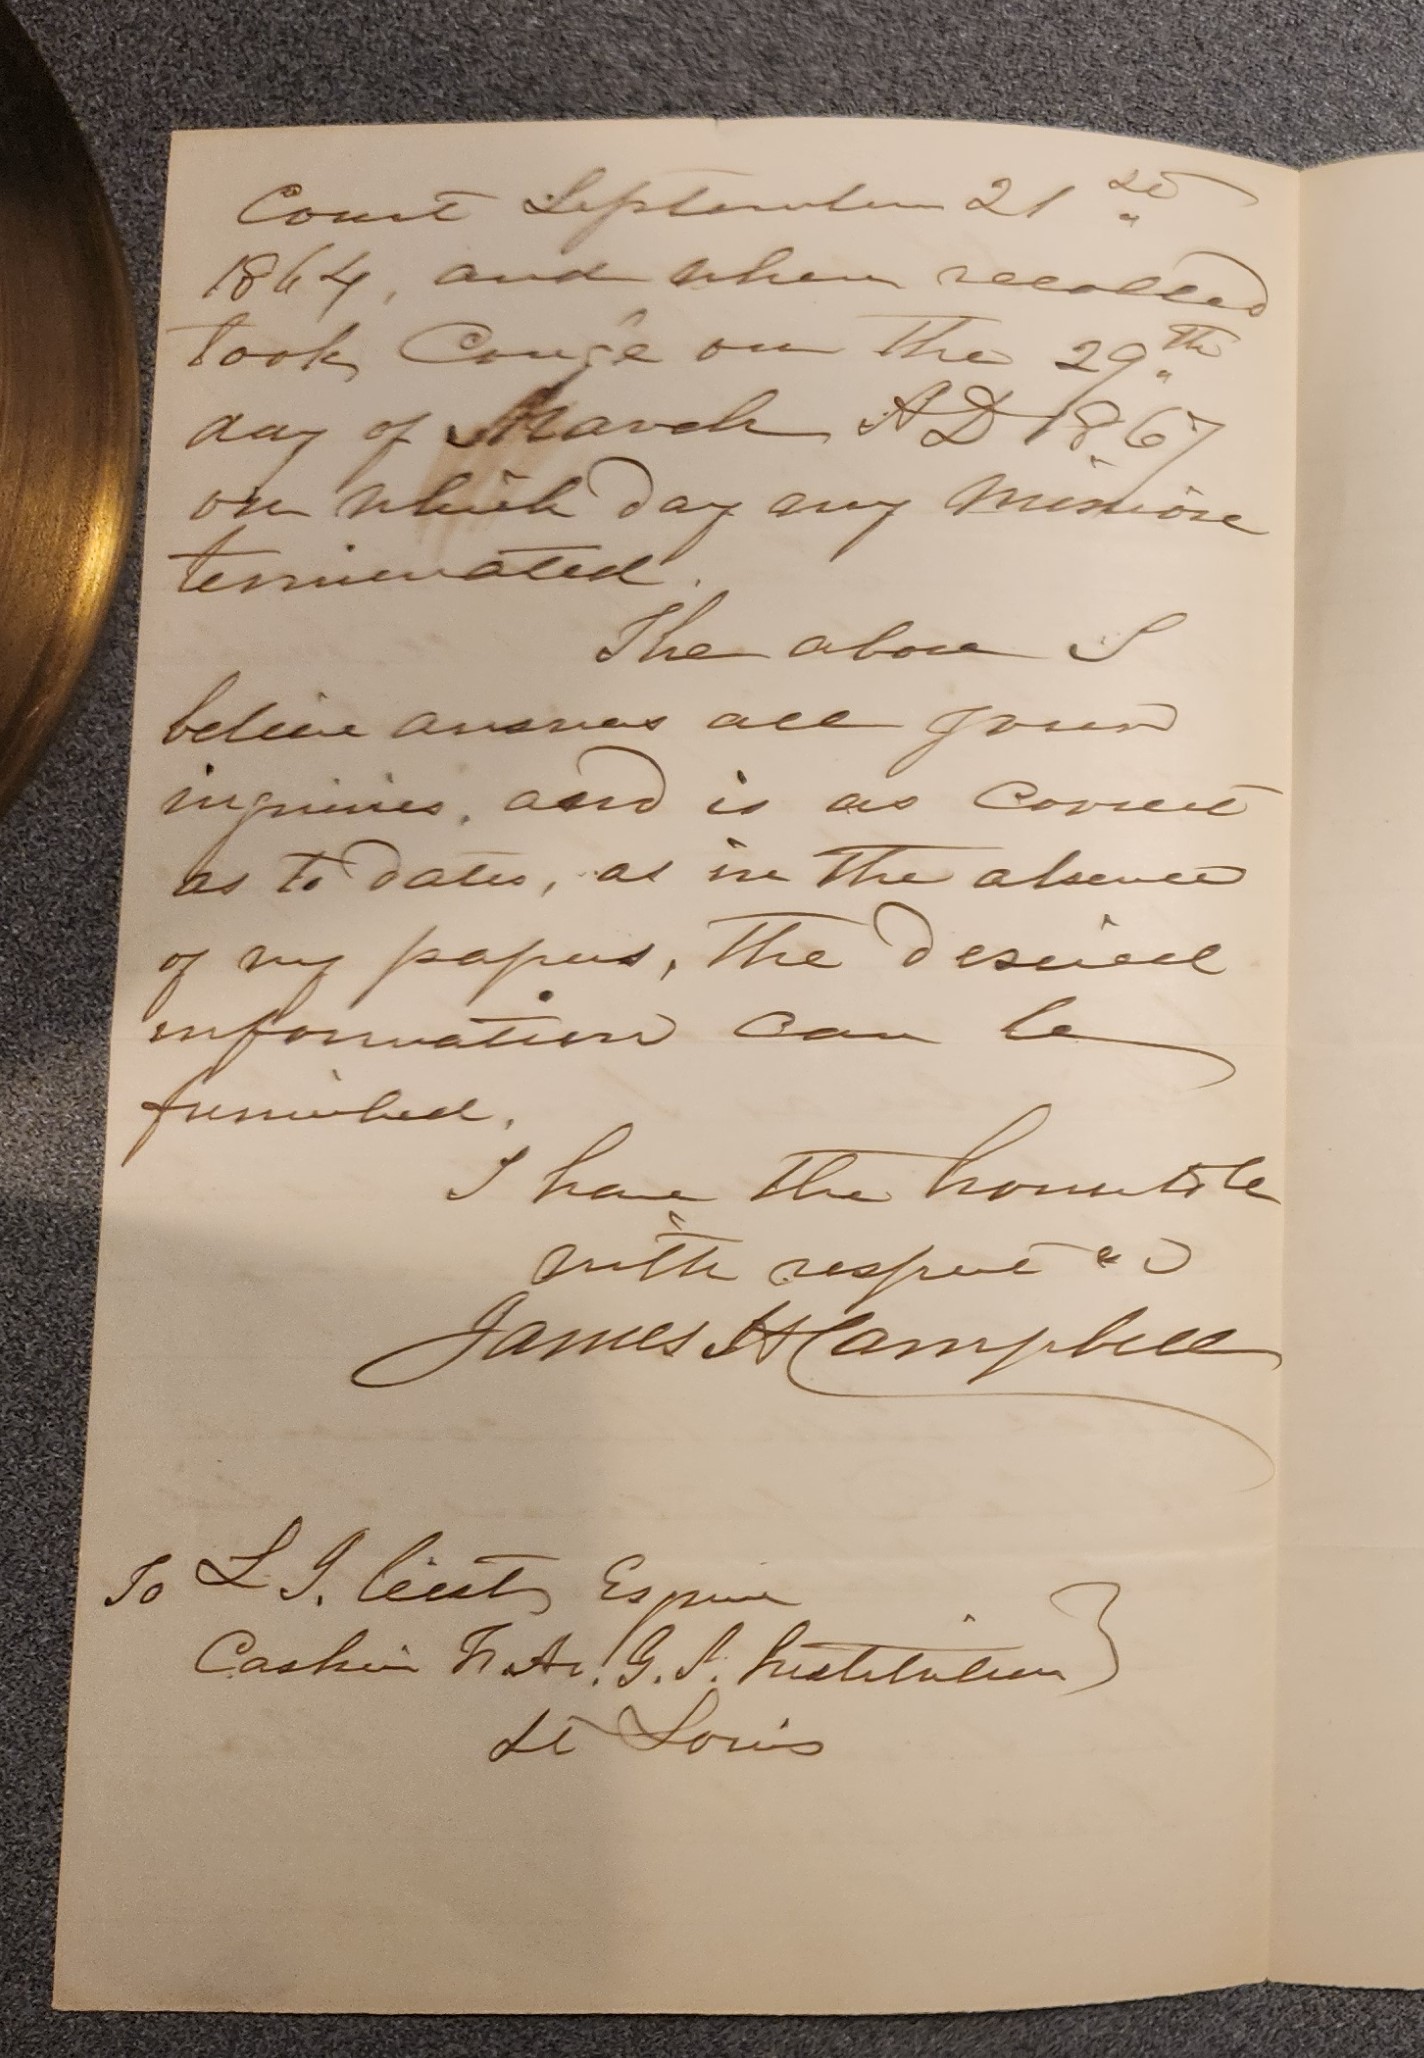 Court September 21st
1864, and when recalled
took Congé on the 29th
day of March AD 1867
on which day my mission
terminated.
The above I
believe answers all your
inquiries, and is as correct
as to dates, as in the absence
of my papers, the desired
information can be
furnished.
I have the honor to be
with respect &c
James H Campbell
To L I. Esquire
Cashier G. I. Institution
St Louis